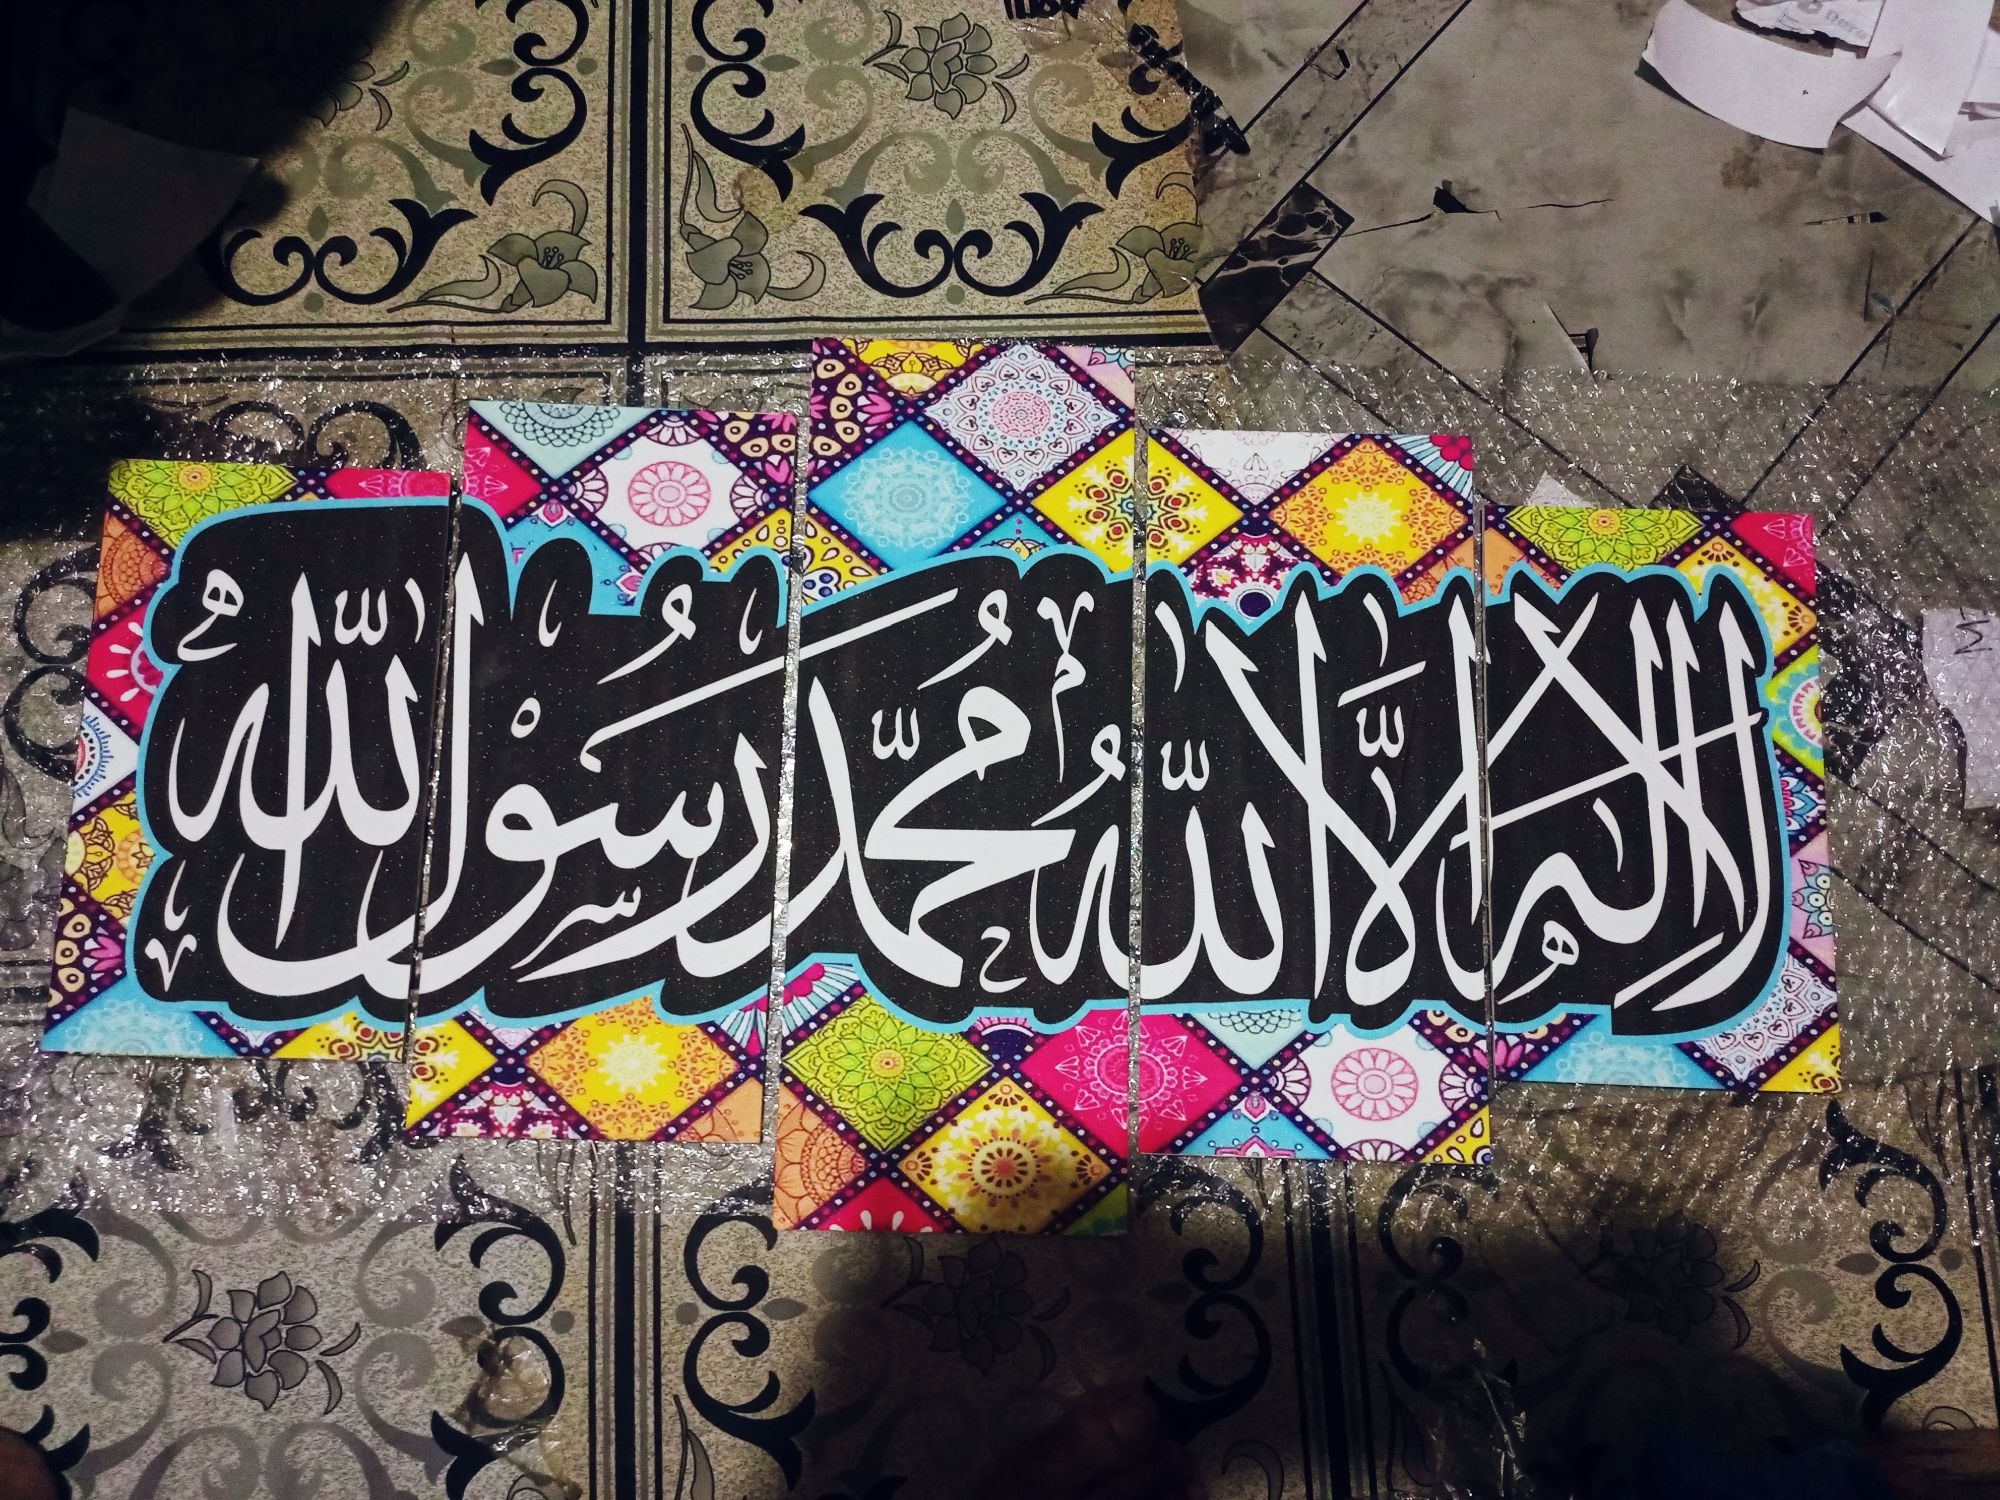 لَا إِلٰهَ إِلَّا اللّٰهُ مُحَمَّدٌ رَسُوْلُ اللّٰهِ
M